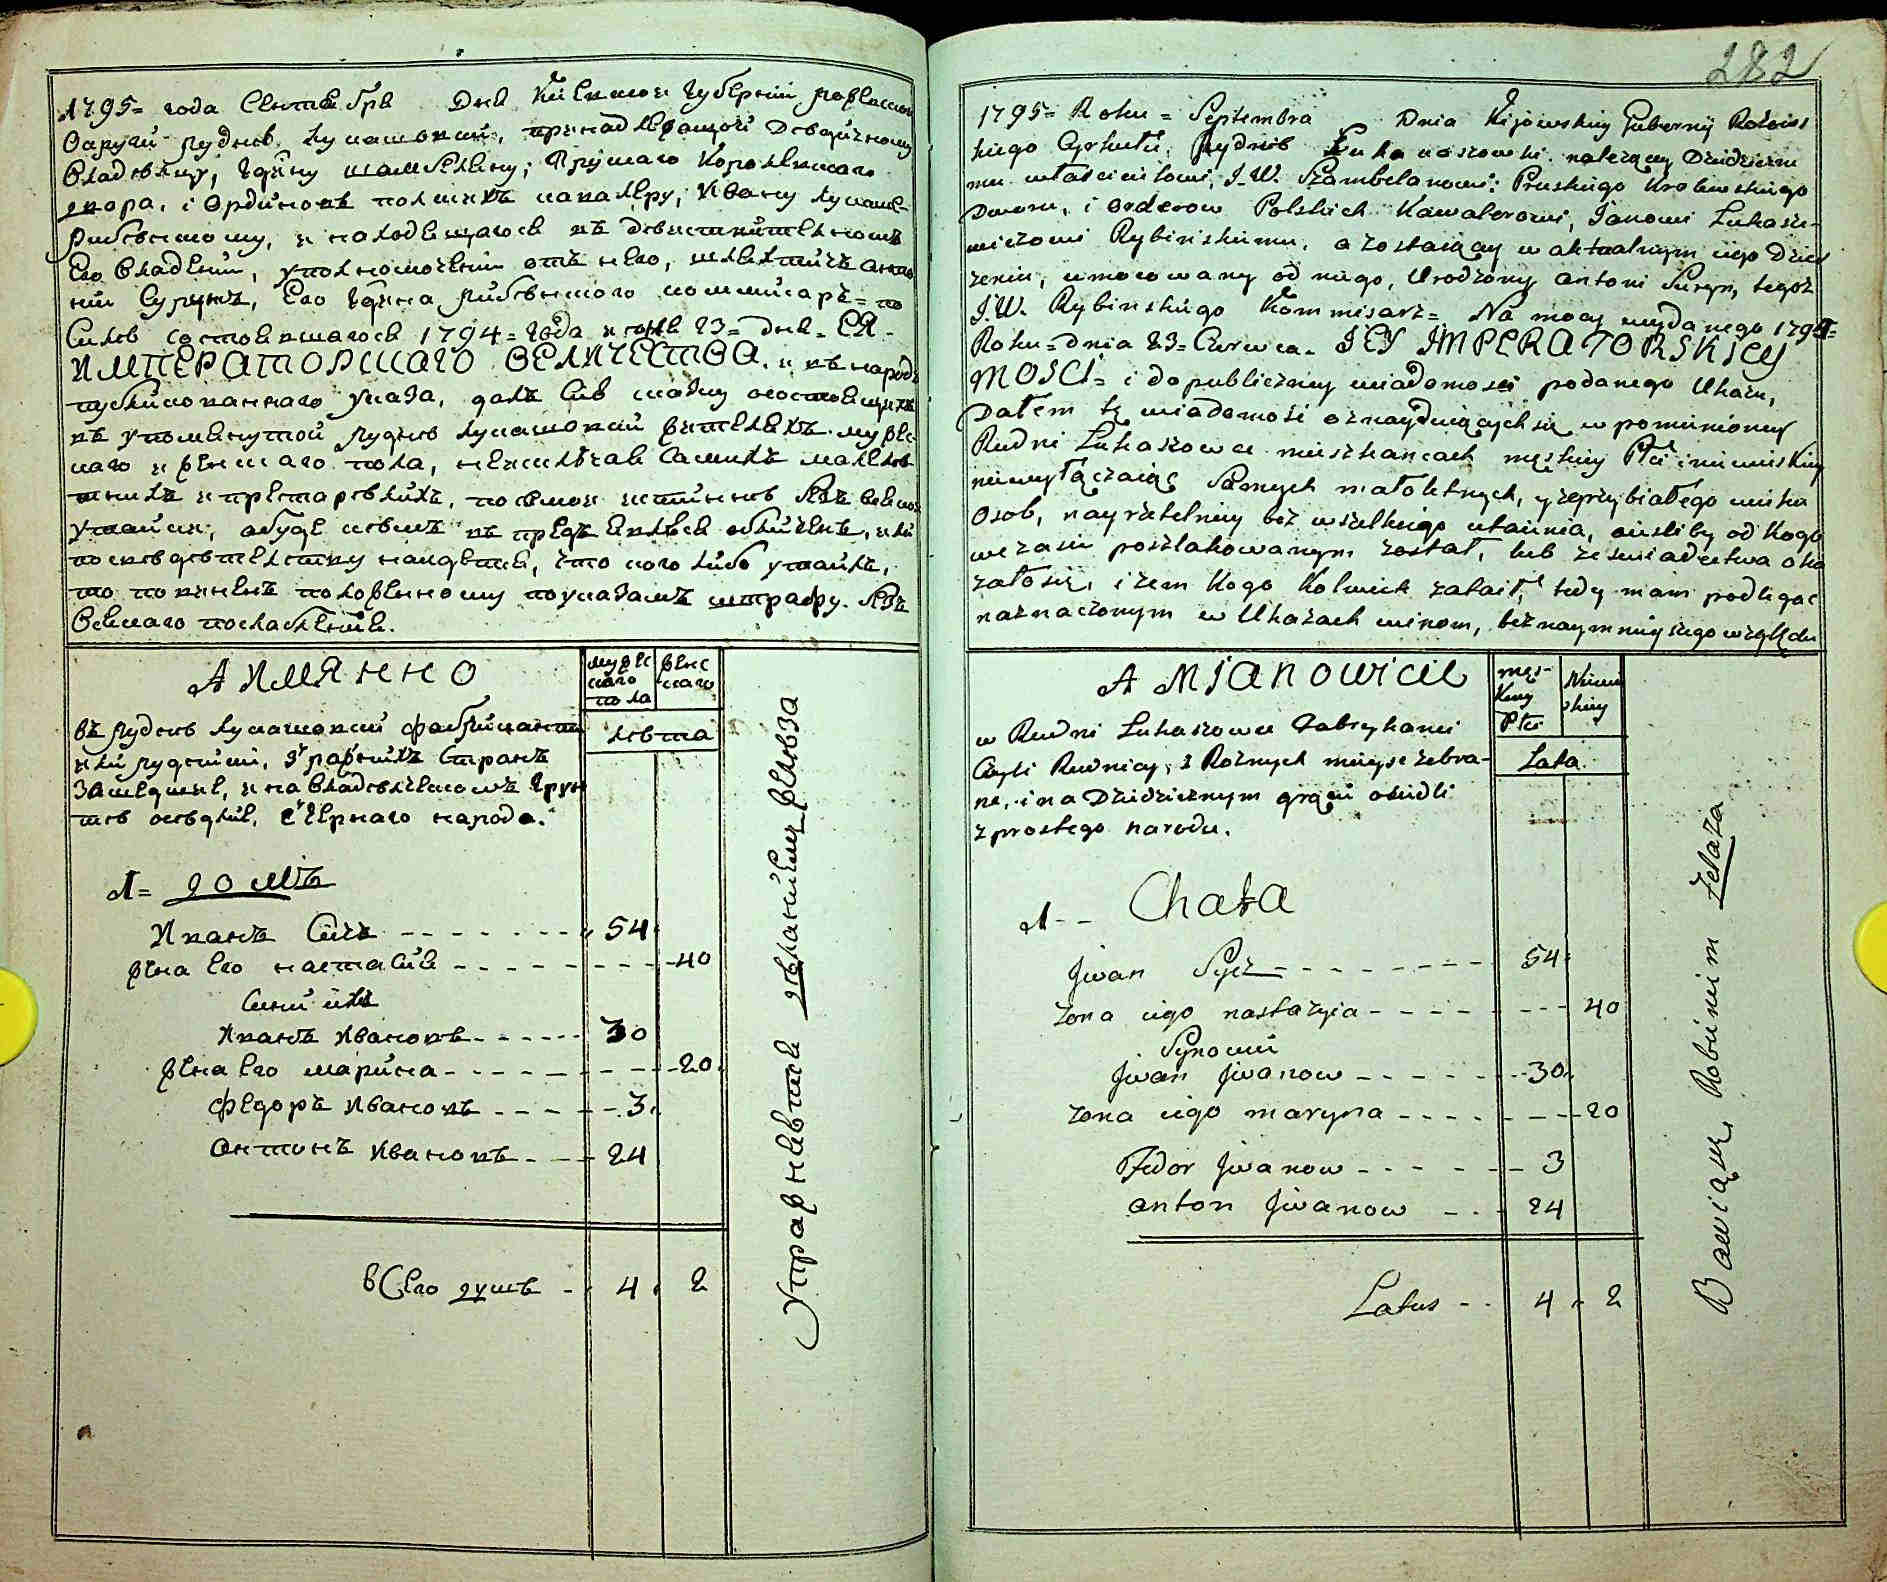 1795= года Сентебра Дня Киевской Губернии
Округи рудне Лукашовки, принадлежащой Дедичному
Владельцу, Г-дину Шамбеляну, Пруского Королевского
двора, и Ординовъ полскихъ кавалеру, Ивану Лукаше-
Рибенскому, и находещагося въ
Его владении, уполномочений отъ него, шляхтичъ Анто
ний Суринъ, Его Г-дина Рибенского коммисаръ = по
Силе состоевшагося 1794= года июня 23= дня. ЕЯ
ИМПЕРАТОРСКАГО ВЕЛИЧЕСТВА. и въ народъ
публикованнаго указа, далъ сию сказку о состоещихъ
въ упоменутой рудне Лукашовки жителехъ мужес
каго и женскаго пола, не исключая самихъ малолет
нихъ и престарелихъ, по самой истинне безъ всякой
утайки, а буде кемъ въ предь явлюся обличенъ, или
по свидетелству найдется, что кого либо утаилъ,
то повиненъ положенному по указамъ штрафу. безъ
Всякаго послабления.
А ИМЯННО
мужес
каго
пола
женс
каго
лета
въ рудне Лукашовки фабриканти
или рудники, з разнихъ странъ
зашедшие, и на владелческомъ грун
те оседлие, с чернаго народа.
1= домъ
Иванъ Сичъ - - - - 54
жена его Настасия - - - - 40
Сини ихъ
Иванъ Ивановъ - - - - 30
жена его Марина - - - - 20
Федоръ Ивановъ - - - - 3
Антонъ Ивановъ - - - 24
всего душъ - 4 2
Упражняются деланиемъ железа
282
1795= Roku = Septembra Dnia Kijowskiey Gubernij
skiego Cyrkułu, Rydnie Łukaszowki należącey Dziedziczne
mu właścicielowi, J.W. Szambelanowi; Pruskiego Krolewskiego
Dworu, i orderow Polskich Kawalerowi, Janowi Łukasze-
wiczowi Rybinskiemu, a zostaiący w aktualnym iego Dzier
żeniu, umocowany od niego, Urodzony Antoni Suryn, tegoż
J.W. Rybinskiego Kommisarz= Na mocy wydanego 1794=
Roku= dnia 23= Czerwca. JEY IMPERATORSKIEY
MOSCI= i do publiczney wiadomosci podanego Ukazu,
Dałem tę wiadomość o znayduiących się w pomienioney
Rudni Łukaszowce mieszkancach męskiey Płci i niewieskiey
niewyłączaiąc Samych małoletnych, y zeprzybiałego wieku
Osob, nayrzetelniey bez wszelkiego utaienia, a iesliby od kogo
w czasie poszlakowanym został, lub ze swiadectwa oka
załosię, iżem kogo kolwiek zataił, tedy mam podlegac
naznaczonym w Ukazach winom, bez naymnieyszego względu
A MIANOWICIE
męs-
kiey
Płci
Niewie
skiey
Lata.
w Rudni Łukaszowce Fabrykanci
Czyli Rudnicy, z Rożnych mieysc zebra-
ni, i na Dziedzicznym grącie osiedli
z prostego narodu.
1 - - Chata
Jwan Sycz - - - - 54
żona iego Nastazyia - - - - 40
Synowie
Jwan Jwanow - - - - 30
żona iego Maryna - - - - 20
Fedor Jwanow - - - - 3
Anton Jwanow - - - 24
Latus - - 4 2
Bawią się, Robieniem żelaza